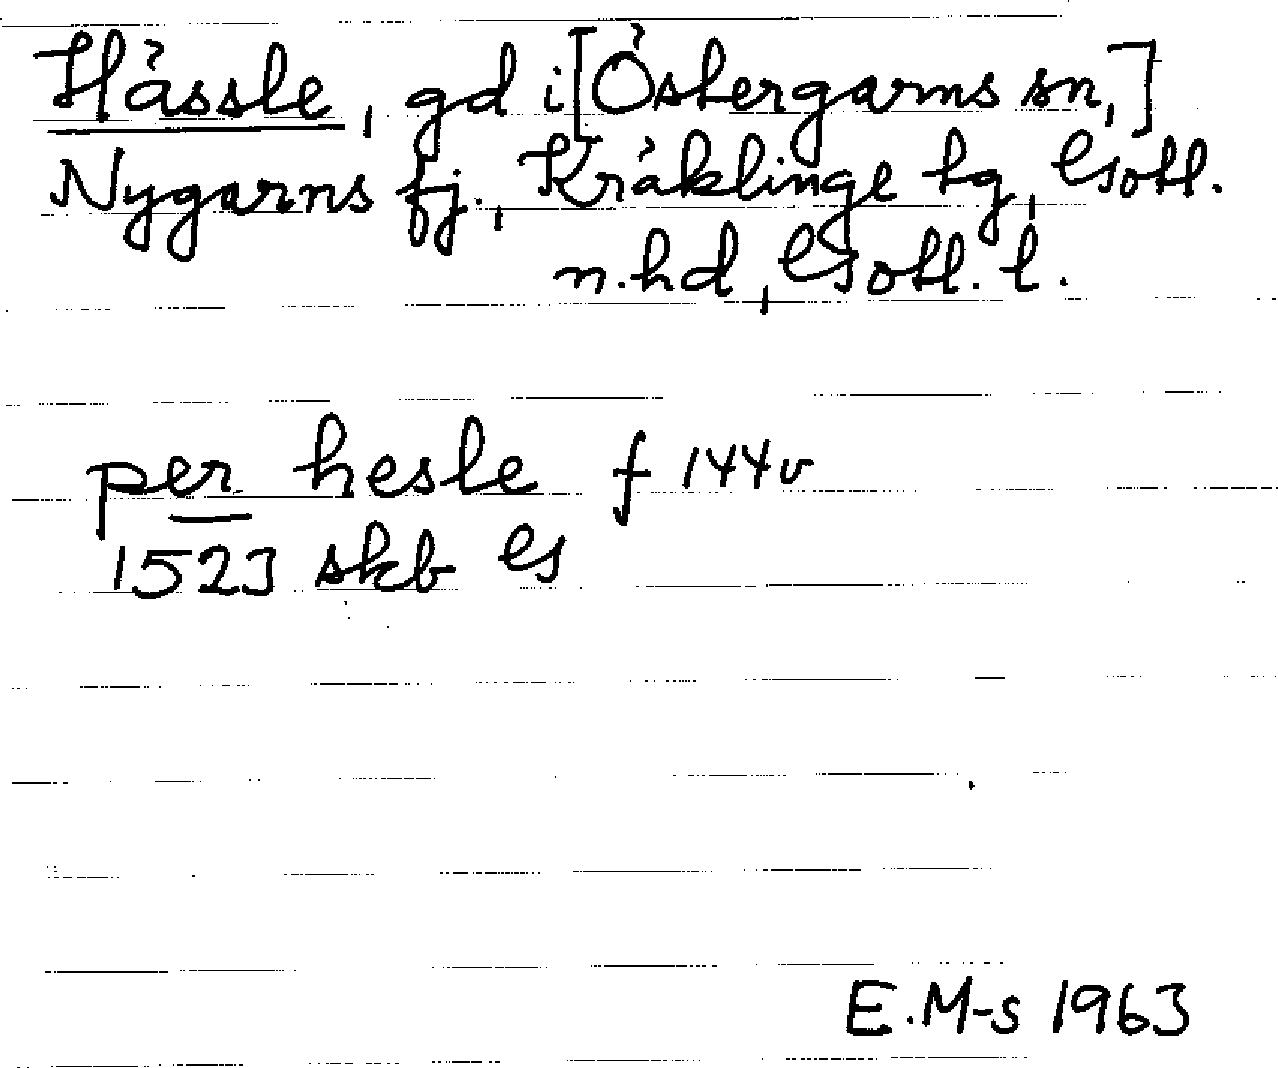 Hässle, gd i [Östergarns sn,]
Nygarns fj., Kräklinge tg, Gotl.
n. hd, Gotl. l.
per hesle f 144v
1523 skb G
E.M-s 1963